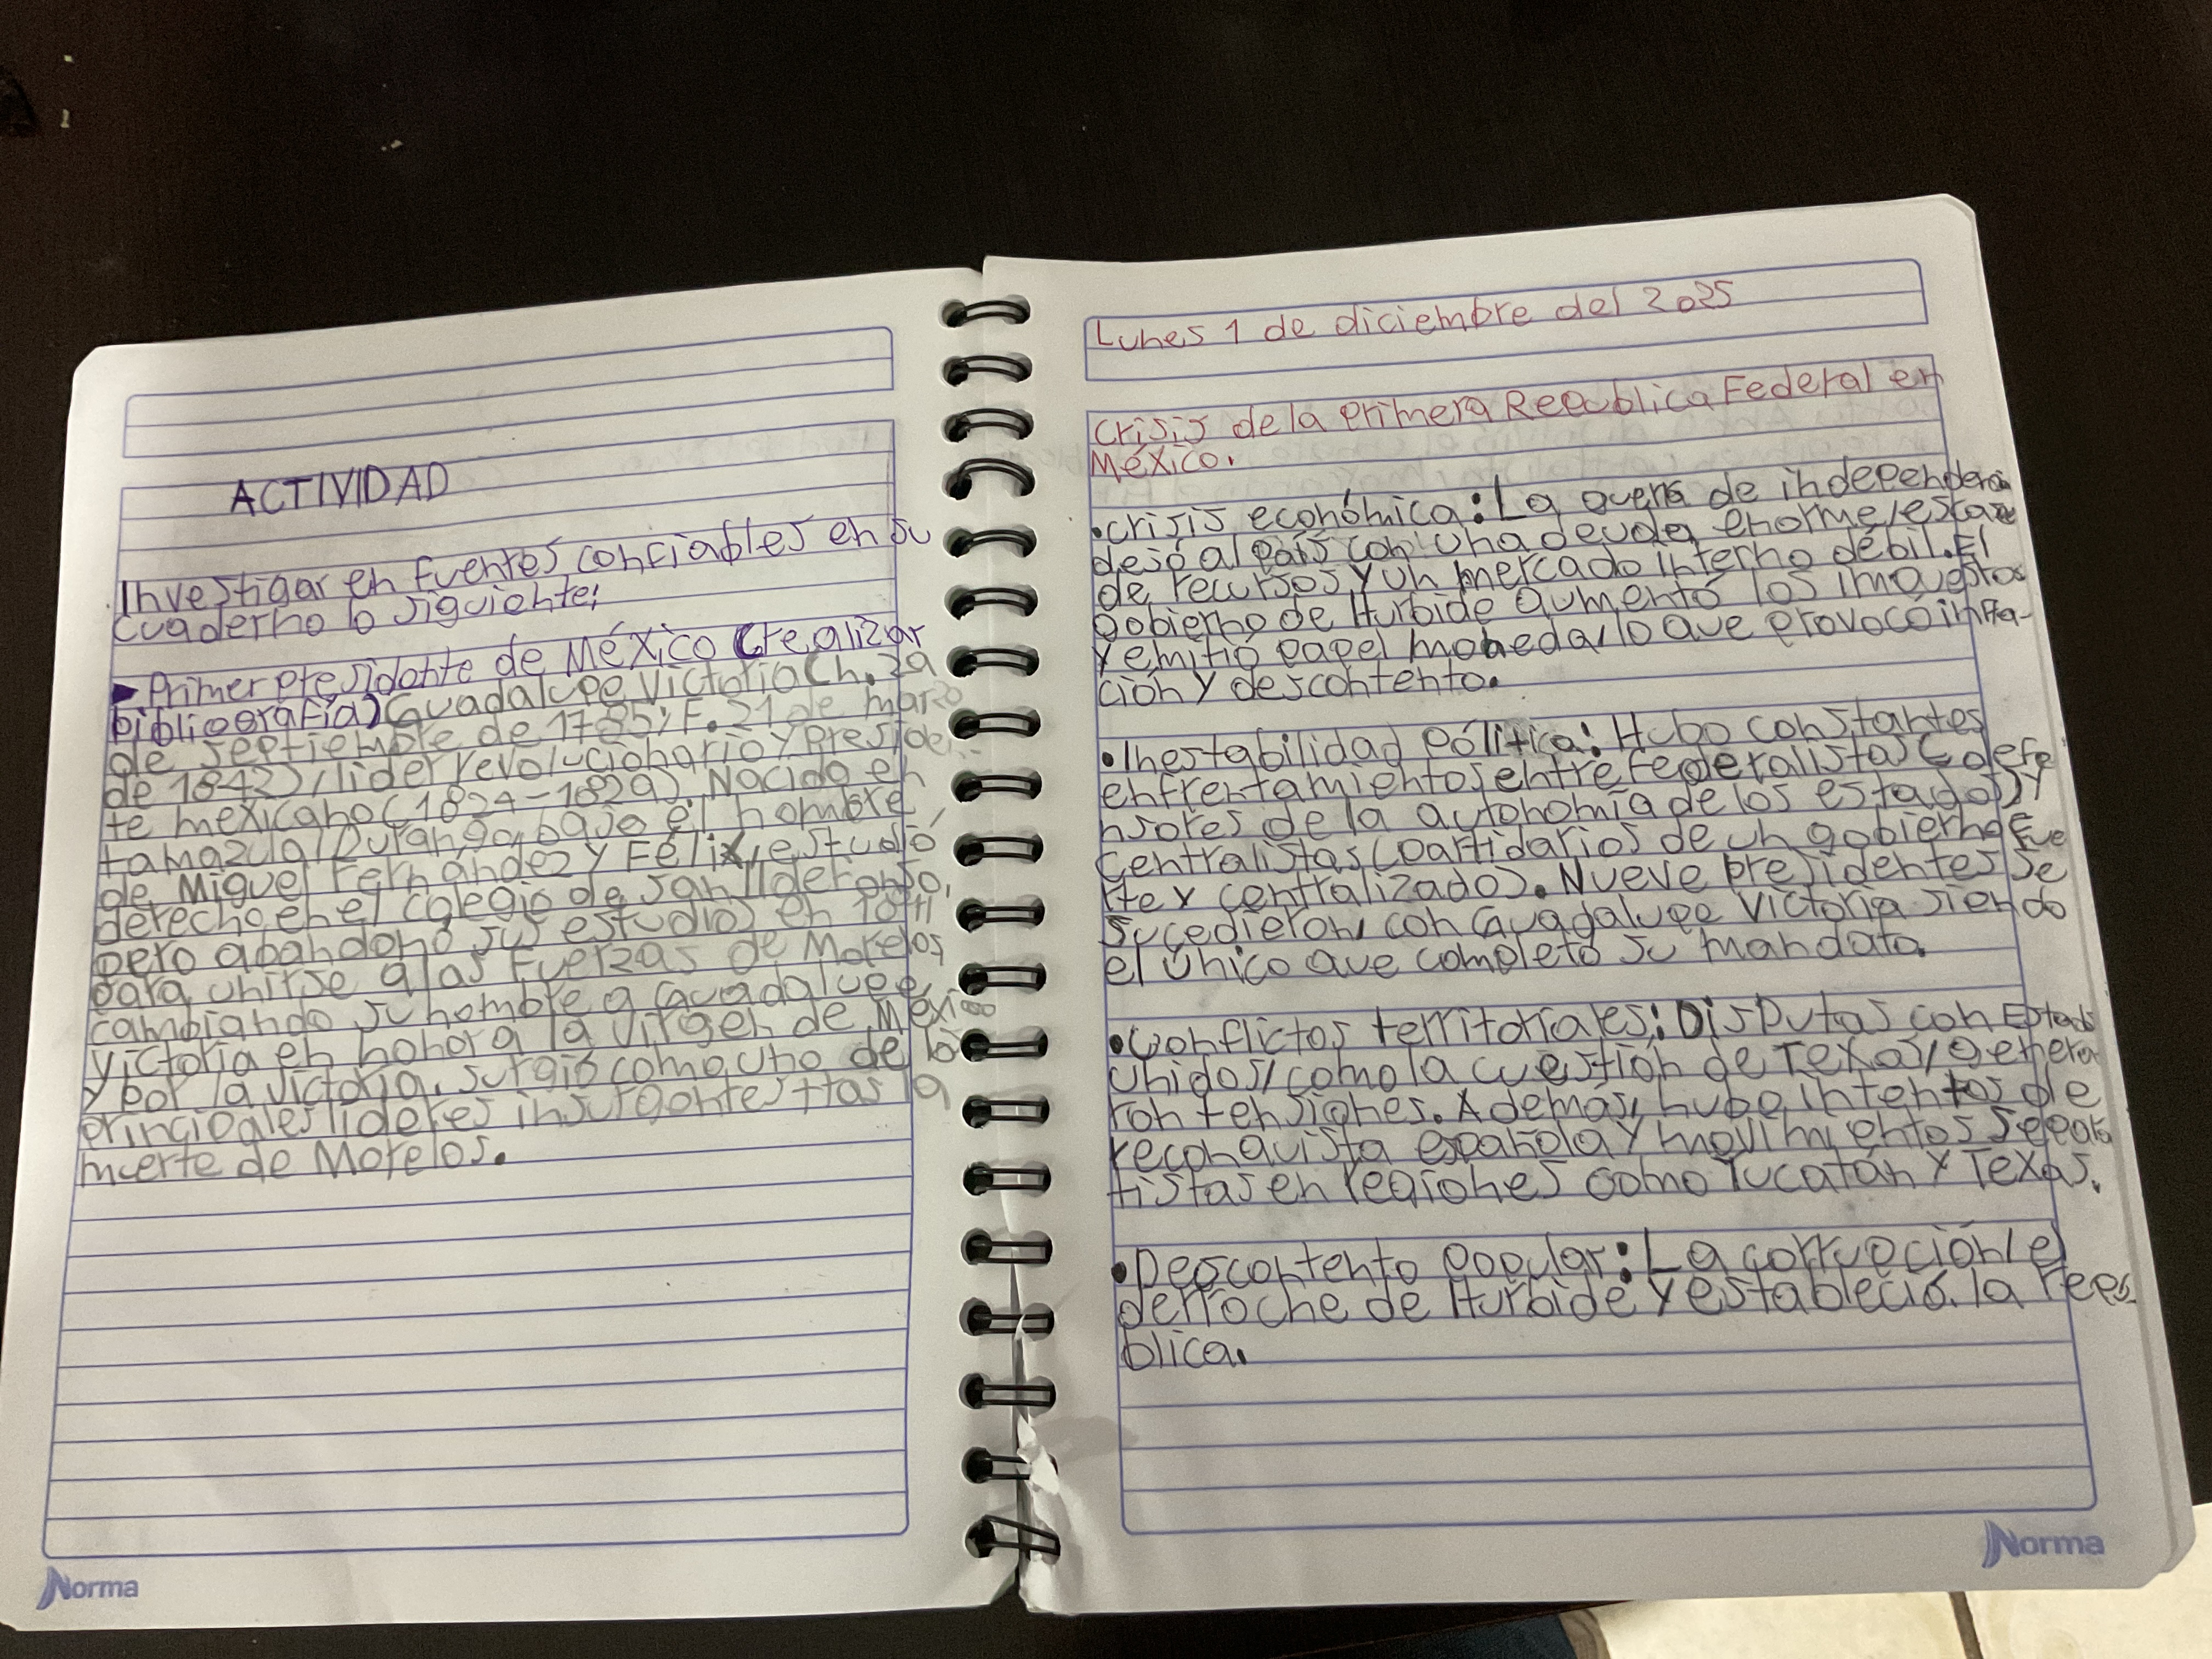 ACTIVIDAD
Investigar en fuentes confiables en su
cuaderno lo siguiente:
▶ Primer presidente de México (realizar
bibliografía) Guadalupe Victoria (n. 29
de septiembre de 1785; F. 21 de marzo
de 1842), lider revolucionario y preside
te mexicano (1824-1829). Nacido en
tamazula, Durango, bajo el nombre
de Miguel Fernández y Félix, estudió
derecho en el colegio de san Ildefonso,
pero abandonó sus estudios en 1811
para unirse a las fuerzas de Morelos,
cambiando su nombre a Guadalupe
Victoria en honor a la virgen de México
y por la victoria. surgió como uno de lo
principales lideres insurgentes tras la
muerte de Morelos.
Norma
Lunes 1 de diciembre del 2025
Crisis de la primera Republica Federal en
México.
•crisis económica: La guerra de independencia
dejó al país con una deuda enorme, escasez
de recursos y un mercado interno débil. El
gobierno de Iturbide aumentó los impuestos
y emitió papel moneda, lo que provocó infla-
ción y descontento.
•Inestabilidad política: Hubo constantes
enfrentamientos entre federalistas (defe
nsores de la autonomía de los estados) y
centralistas (partidarios de un gobierno fue
rte y centralizado). Nueve presidentes se
sucedieron, con Guadalupe Victoria siendo
el único que completó su mandato.
•Conflictos territoriales: Disputas con Estados
unidos, como la cuestión de Texas, genera
ron tensiones. Además, hubo intentos de
reconquista española y movimientos separa
tistas en regiones como Yucatán y Texas.
•Descontento popular: La corrupción, el
derroche de Iturbide y estableció la repú
blica.
Norma